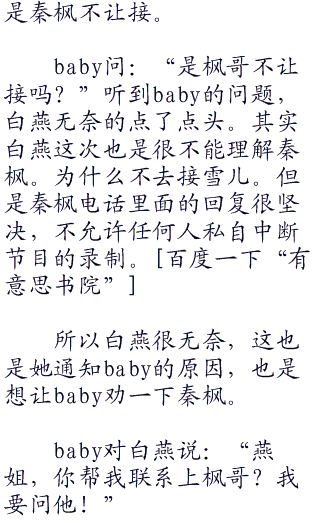 是秦枫不让接。
baby问：“是枫哥不让
接吗？”听到baby的问题，
白燕无奈的点了点头。其实
白燕这次也是很不能理解秦
枫。为什么不去接雪儿。但
是秦枫电话里面的回复很坚
决，不允许任何人私自中断
节目的录制。[百度一下“有
意思书院”]
所以白燕很无奈，这也
是她通知baby的原因，也是
想让baby劝一下秦枫。
baby对白燕说：“燕
姐，你帮我联系上枫哥？我
要问他！”